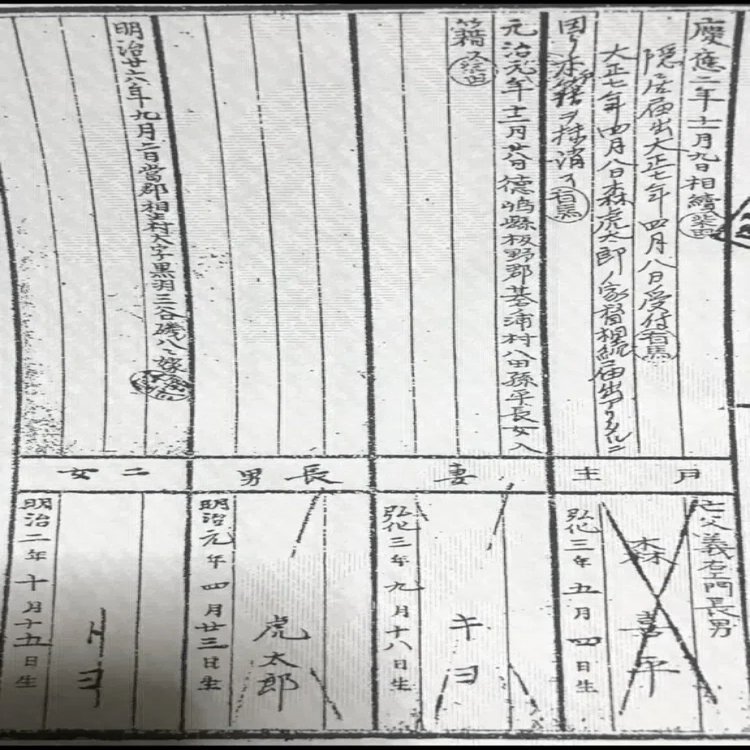 慶應二年十二月九日相續
隠居届出大正七年四月八日受付有馬
大正七年四月八日森虎太郎ノ家督相続届出アリタルニ
因リ本戸籍ヲ抹消ス有馬
戸主
亡父義右エ門長男
森喜平
弘化三年五月四日生
元治元年十二月廿八日徳島縣板野郡基浦村八田孫平長女入
籍ス
妻
キヨ
弘化三年九月十八日生
長男
虎太郎
明治元年四月廿三日生
明治廿六年九月二日當郡相生村大字黒羽三谷磯八ニ嫁ス
二女
トヨ
明治二年十月十五日生